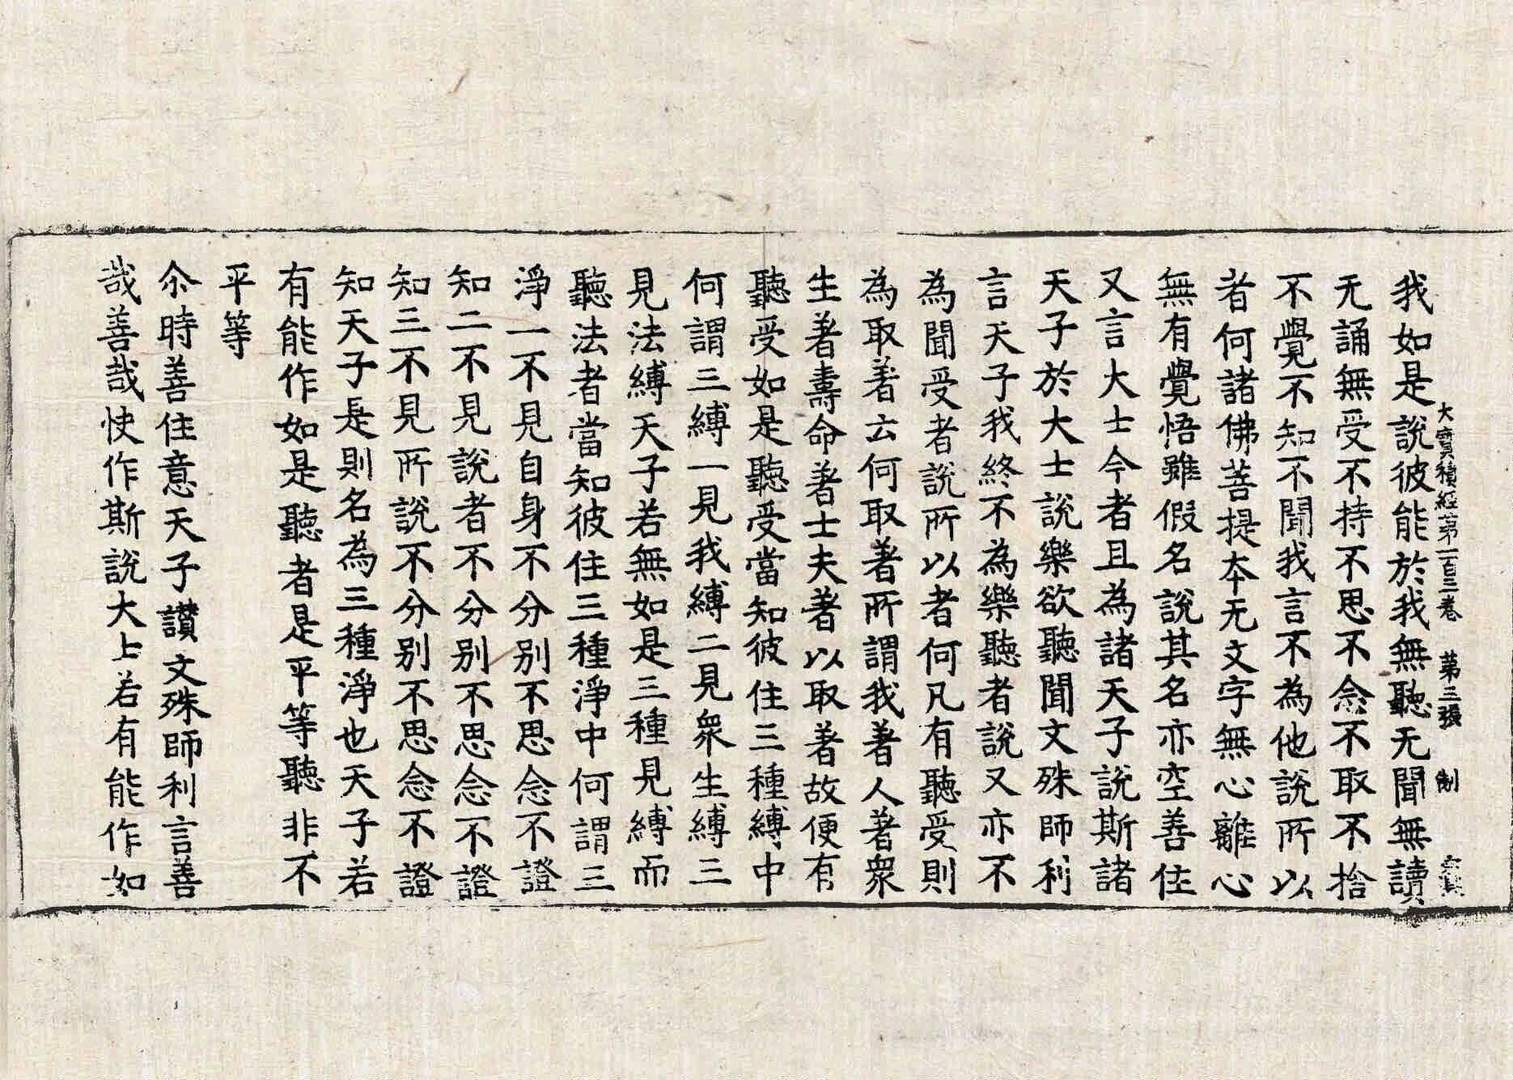 大寶積經第一百三卷　第三張　制
我如是說彼能於我無聽无聞無讀
无誦無受不持不思不念不取不捨
不覺不知不聞我言不為他說所以
者何諸佛菩提本无文字無心離心
無有覺悟雖假名說其名亦空善住
又言大士今者且為諸天子說斯諸
天子於大士說樂欲聽聞文殊師利
言天子我終不為樂聽者說又亦不
為聞受者說所以者何凡有聽受則
為取著云何取著所謂我著人著衆
生著壽命著士夫著以取著故便有
聽受如是聽受當知彼住三種縛中
何謂三縛一見我縛二見衆生縛三
見法縛天子若無如是三種見縛而
聽法者當知彼住三種淨中何謂三
淨一不見自身不分別不思念不證
知二不見說者不分別不思念不證
知三不見所說不分別不思念不證
知天子是則名為三種淨也天子若
有能作如是聽者是平等聽非不
平等
尒時善住意天子讚文殊師利言善
哉善哉快作斯說大士若有能作如